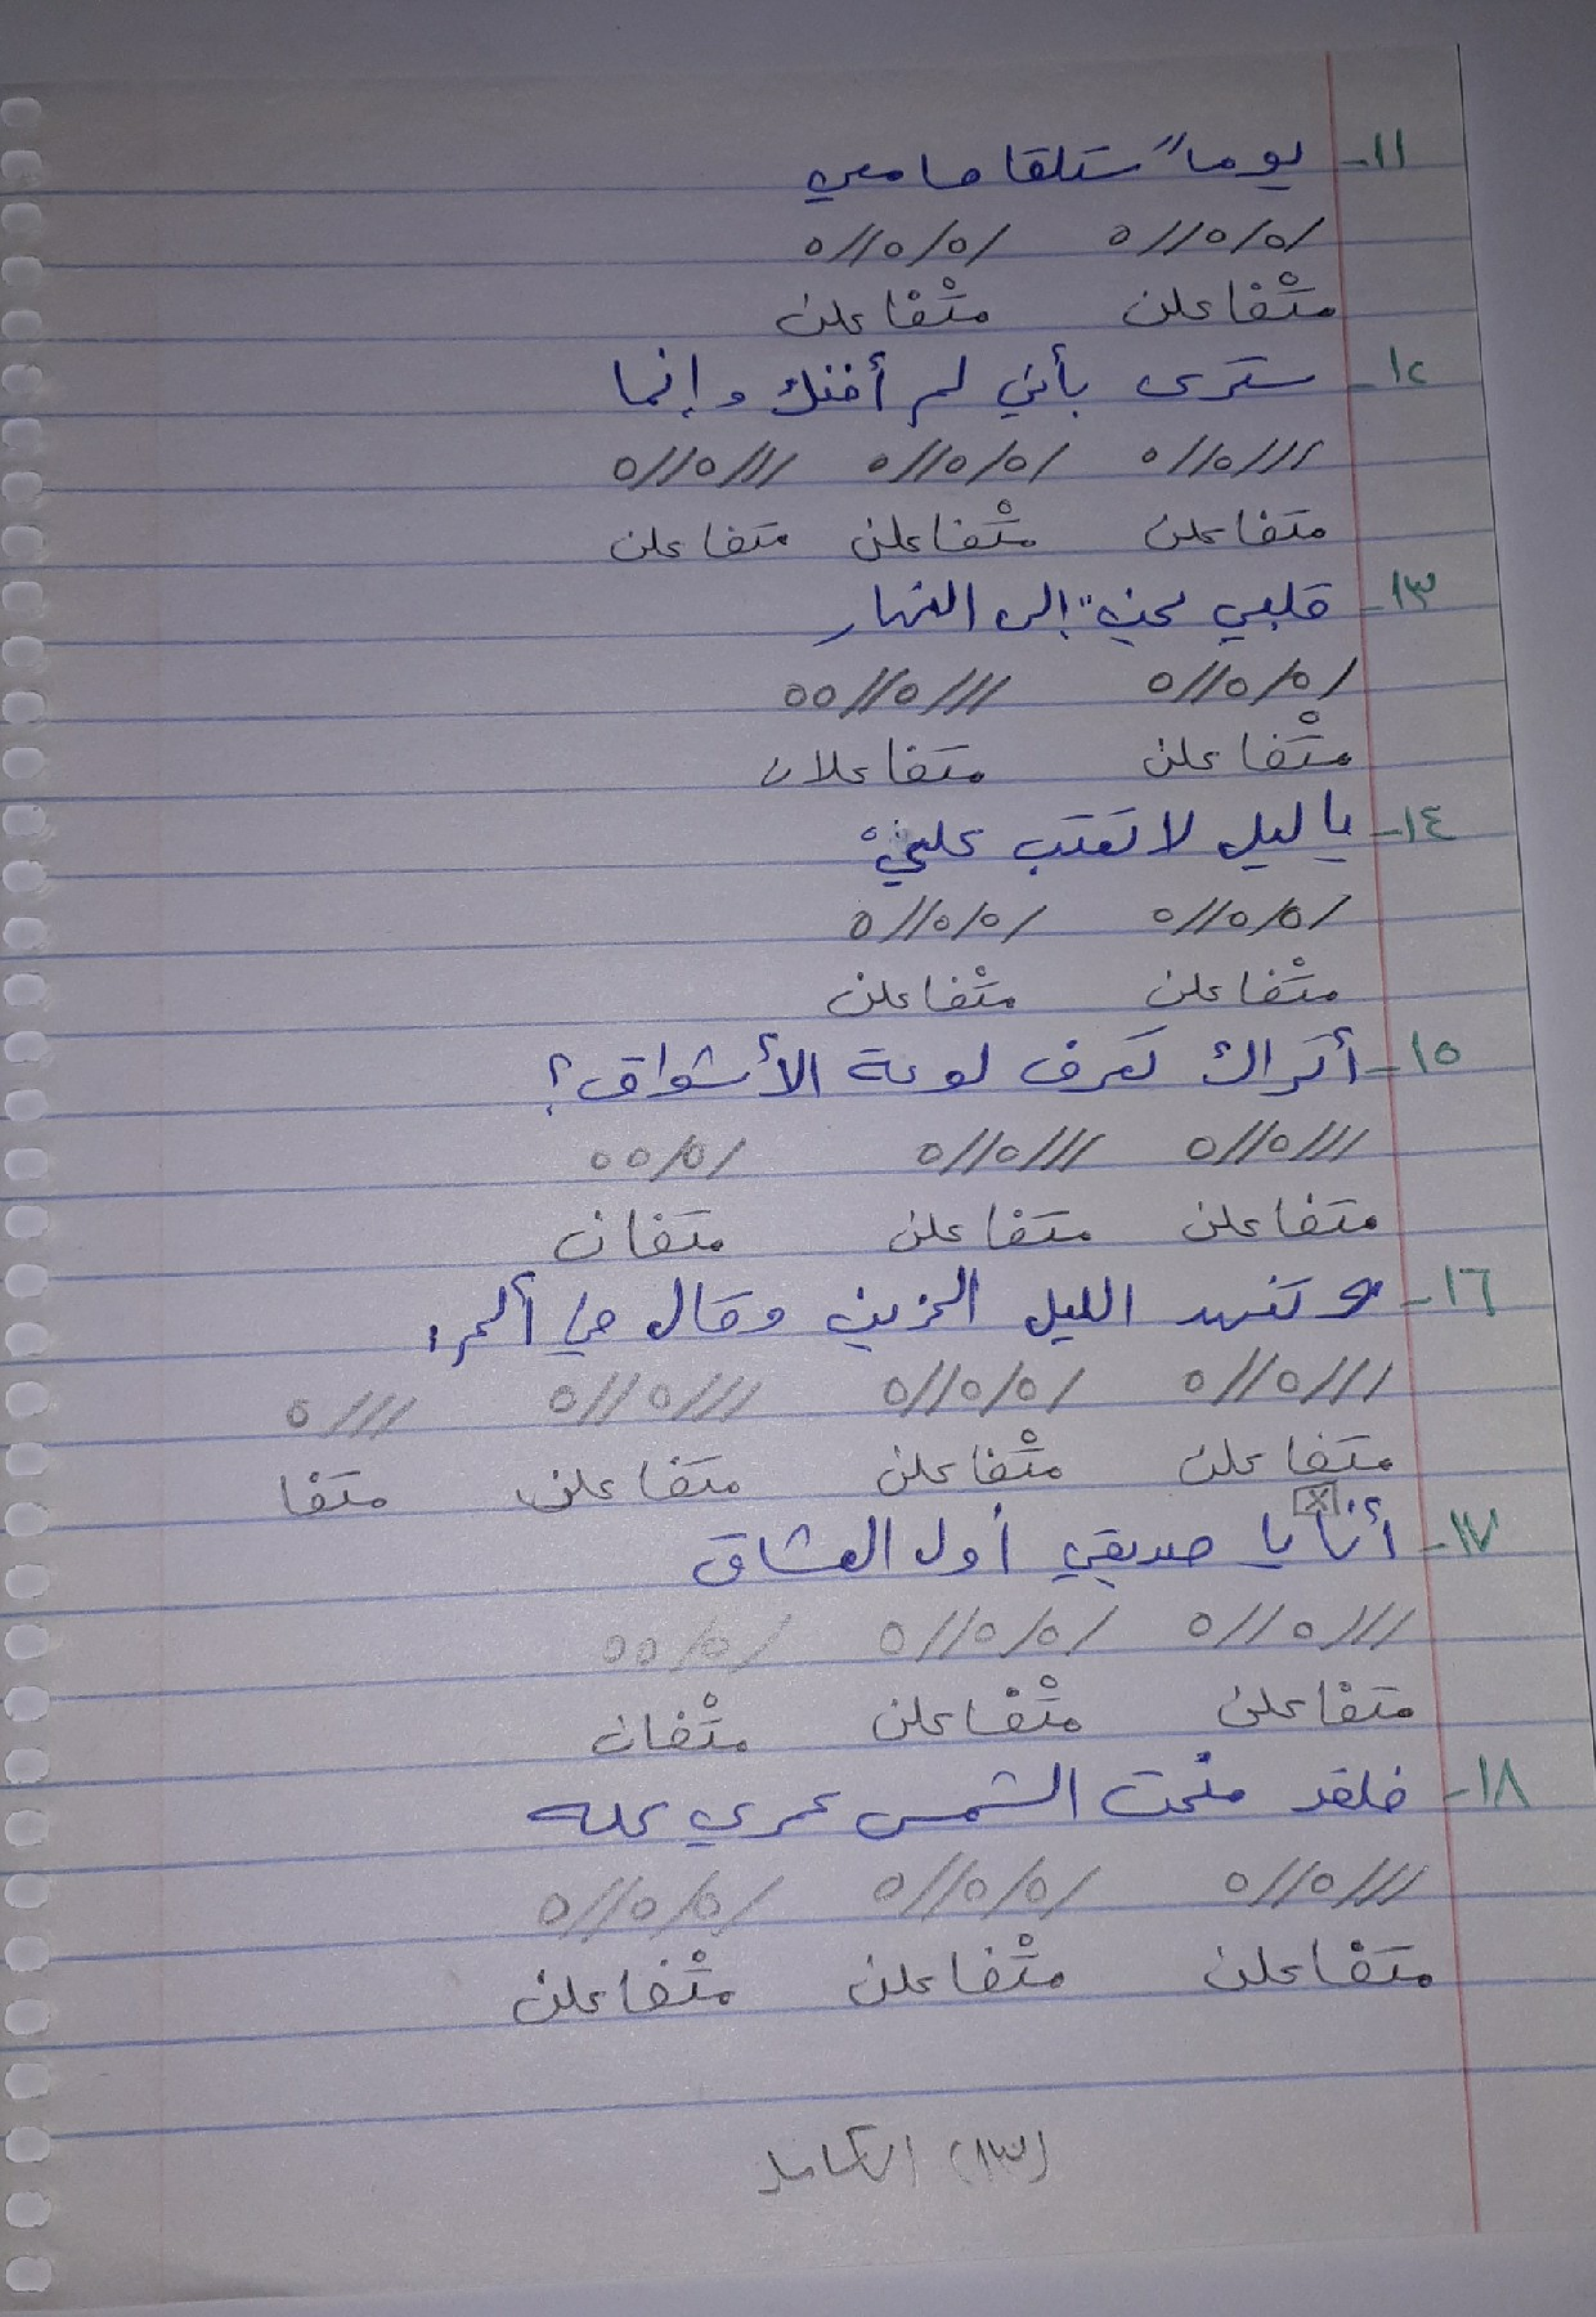 ١١- يوماً ستلقا ما معي
/o/o//o /o/o//o
متْفاعلن متْفاعلن
١٢- سترى بأني لم أخنك وإنما
///o//o /o/o//o ///o//o
متفاعلن متْفاعلن متفاعلن
١٣- قلبي يحنّ إلى النهار
/o/o//o ///o//oo
متْفاعلن متفاعلان
١٤- يا ليل لا تعتب عليّ
/o/o//o /o/o//o
متْفاعلن متْفاعلن
١٥- أتراك تعرف لوعة الأشواق؟
///o//o ///o//o /o/oo
متفاعلن متفاعلن متفان
١٦- وتنهد الليل الحزين وقال في ألم:
///o//o /o/o//o ///o//o ///o
متفاعلن متْفاعلن متفاعلن متفا
١٧- أنا يا صديقي أول العشاق
///o//o /o/o//o /o/oo
متفاعلن متْفاعلن متْفان
١٨- فلقد منحت الشمس عمري كله
///o//o /o/o//o /o/o//o
متفاعلن متْفاعلن متْفاعلن
(١٣) الكامل